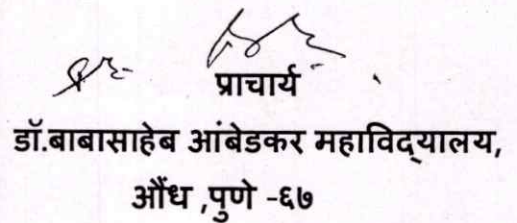 प्राचार्य
डॉ.बाबासाहेब आंबेडकर महाविद्यालय,
औंध ,पुणे -६७